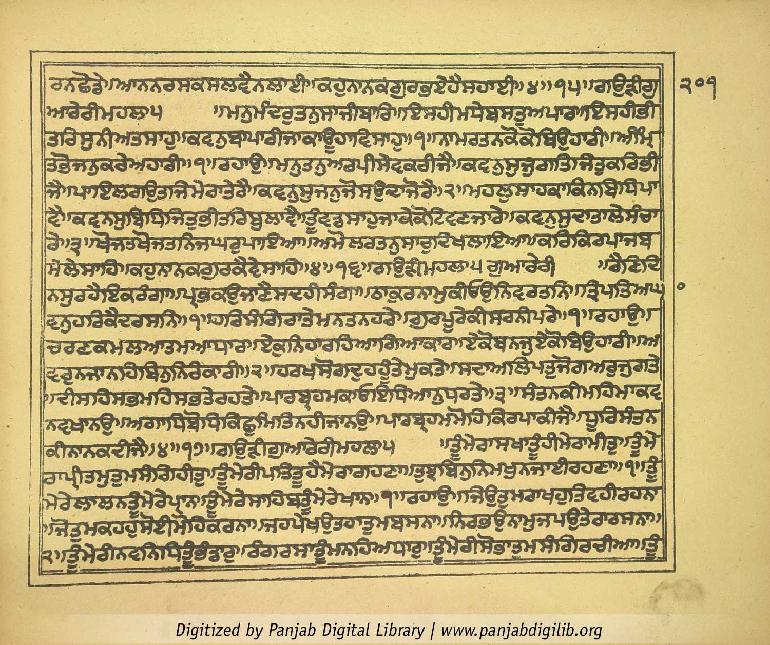 ਰਨਛੋਡੇ॥ਆਨਨਰਸਕਸਲਵੈਨਲਾਈ॥ਕਹੁਨਾਨਕਗੁਰਭਏਹੈਸਹਾਈ॥੪॥੧੫॥ਗਉੜੀਗੁ ੨੦੧
ਆਰੇਰੀਮਹਲਾ੫ ॥ਮਨੁਮੰਦਰੁਤਨੁਸਾਜੀਬਾਰਿ॥ਇਸਹੀਮਧੇਬਸਤੁਅਪਾਰ॥ਇਸਹੀਭੀ
ਤਰਿਸੁਨੀਅਤਸਾਹੁ॥ਕਵਨੁਬਾਪਾਰੀਜਾਕਾਊਹਾਵਿਸਾਹੁ॥੧॥ਨਾਮਰਤਨਕੋਕੋਬਿਉਹਾਰੀ॥ਅੰਮ੍ਰਿ
ਤਭੋਜਨੁਕਰੇਅਹਾਰੀ॥੧॥ਰਹਾਉ॥ਮਨੁਤਨੁਅਰਪੀਸੇਵਕਰੀਜੈ॥ਕਵਨੁਸੁਜੁਗਤਿਜਿਤੁਕਰਿਭੀ
ਜੈ॥ਪਾਇਲਗਉਤਜਿਮੇਰਾਤੇਰੈ॥ਕਵਨੁਸੁਜਨੁਜੋਸਉਦਾਜੋਰੈ॥੨॥ਮਹਲੁਸਾਹਕਾਕਿਨਬਿਧਿਪਾ
ਵੈ॥ਕਵਨਸੁਬਿਧਿਜਿਤੁਭੀਤਰਿਬੁਲਾਵੈ॥ਤੂੰਵਡਸਾਹੁਜਾਕੇਕੋਟਿਵਣਜਾਰੇ॥ਕਵਨੁਸੁਦਾਤਾਲੇਸੰਚਾ
ਰੇ॥੩॥ਖੋਜਤਖੋਜਤਨਿਜਘਰੁਪਾਇਆ॥ਅਮੋਲਰਤਨੁਸਾਚੁਦਿਖਲਾਇਆ॥ਕਰਿਕਿਰਪਾਜਬ
ਮੇਲੇਸਾਹਿ॥ਕਹੁਨਾਨਕਗੁਰਕੈਵੇਸਾਹਿ॥੪॥੧੬॥ਗਉੜੀਮਹਲਾ੫ਗੁਆਰੇਰੀ ॥ਰੈਣਿਦਿ
ਨਸੁਰਹੈਇਕਰੰਗਾ॥ਪ੍ਰਭਕਉਜਾਣੈਸਦਹੀਸੰਗਾ॥ਠਾਕੁਰਨਾਮੁਕੀਓਉਨਿਵਰਤਨਿ॥ਤ੍ਰਿਪਤਿਅਘਾ
ਵਨੁਹਰਿਕੈਦਰਸਨਿ॥੧॥ਹਰਿਸੰਗਿਰਾਤੇਮਨਤਨਹਰੇ॥ਗੁਰਪੂਰੇਕੀਸਰਨੀਪਰੇ॥੧॥ਰਹਾਉ॥
ਚਰਣਕਮਲਆਤਮਆਧਾਰ॥ਏਕੁਨਿਹਾਰਹਿਆਗਿਆਕਾਰ॥ਏਕੋਬਨਜੁਏਕੋਬਿਉਹਾਰੀ॥ਅ
ਵਰੁਨਜਾਨਹਿਬਿਨੁਨਿਰੰਕਾਰੀ॥੨॥ਹਰਖਸੋਗਦੁਹਹੂੰਤੇਮੁਕਤੇ॥ਸਦਾਅਲਿਪਤੁਜੋਗਅਰੁਜੁਗਤੇ
॥ਦੀਸਹਿਸਭਮਹਿਸਭਤੇਰਹਤੇ॥ਪਾਰਬ੍ਰਹਮਕਾਓਇਧਿਆਨੁਧਰਤੇ॥੩॥ਸੰਤਨਕੀਮਹਿਮਾਕਵ
ਨਵਖਾਨਉ॥ਅਗਾਧਿਬੋਧਿਕਿਛੁਮਿਤਿਨਹੀਜਾਨਉ॥ਪਾਰਬ੍ਰਹਮਮੋਹਿਕਿਰਪਾਕੀਜੈ॥ਧੂਰਿਸੰਤਨ
ਕੀਨਾਨਕਦੀਜੈ॥੪॥੧੭॥ਗਉੜੀਗੁਆਰੇਰੀਮਹਲਾ੫ ॥ਤੂੰਮੇਰਾਸਖਾਤੂੰਹੀਮੇਰਾਮੀਤੁ॥ਤੂੰਮੇ
ਰਾਪ੍ਰੀਤਮੁਤੁਮਸੰਗਿਹੀਤੁ॥ਤੂੰਮੇਰੀਪਤਿਤੂਹੈਮੇਰਾਗਹਣਾ॥ਤੁਝਬਿਨੁਨਿਮਖੁਨਜਾਈਰਹਣਾ॥੧॥ਤੂੰ
ਮੇਰੇਲਾਲਨਤੂੰਮੇਰੇਪ੍ਰਾਨ॥ਤੂੰਮੇਰੇਸਾਹਿਬਤੂੰਮੇਰੇਖਾਨ॥੧॥ਰਹਾਉ॥ਜਿਉਤੁਮਰਾਖਹੁਤਿਵਹੀਰਹਨਾ
॥ਜੋਤੁਮਕਹਹੁਸੋਈਮੋਹਿਕਰਨਾ॥ਜਹਪੇਖਉਤਹਾਤੁਮਬਸਨਾ॥ਨਿਰਭਉਨਾਮੁਜਪਉਤੇਰਾਰਸਨਾ॥
੨॥ਤੂੰਮੇਰੀਨਵਨਿਧਿਤੂੰਭੰਡਾਰੁ॥ਰੰਗਰਸਾਤੂੰਮਨਹਿਅਧਾਰੁ॥ਤੂੰਮੇਰੀਸੋਭਾਤੁਮਸੰਗਿਰਚੀਆ॥ਤੂੰ
Digitized by Panjab Digital Library | www.panjabdigilib.org